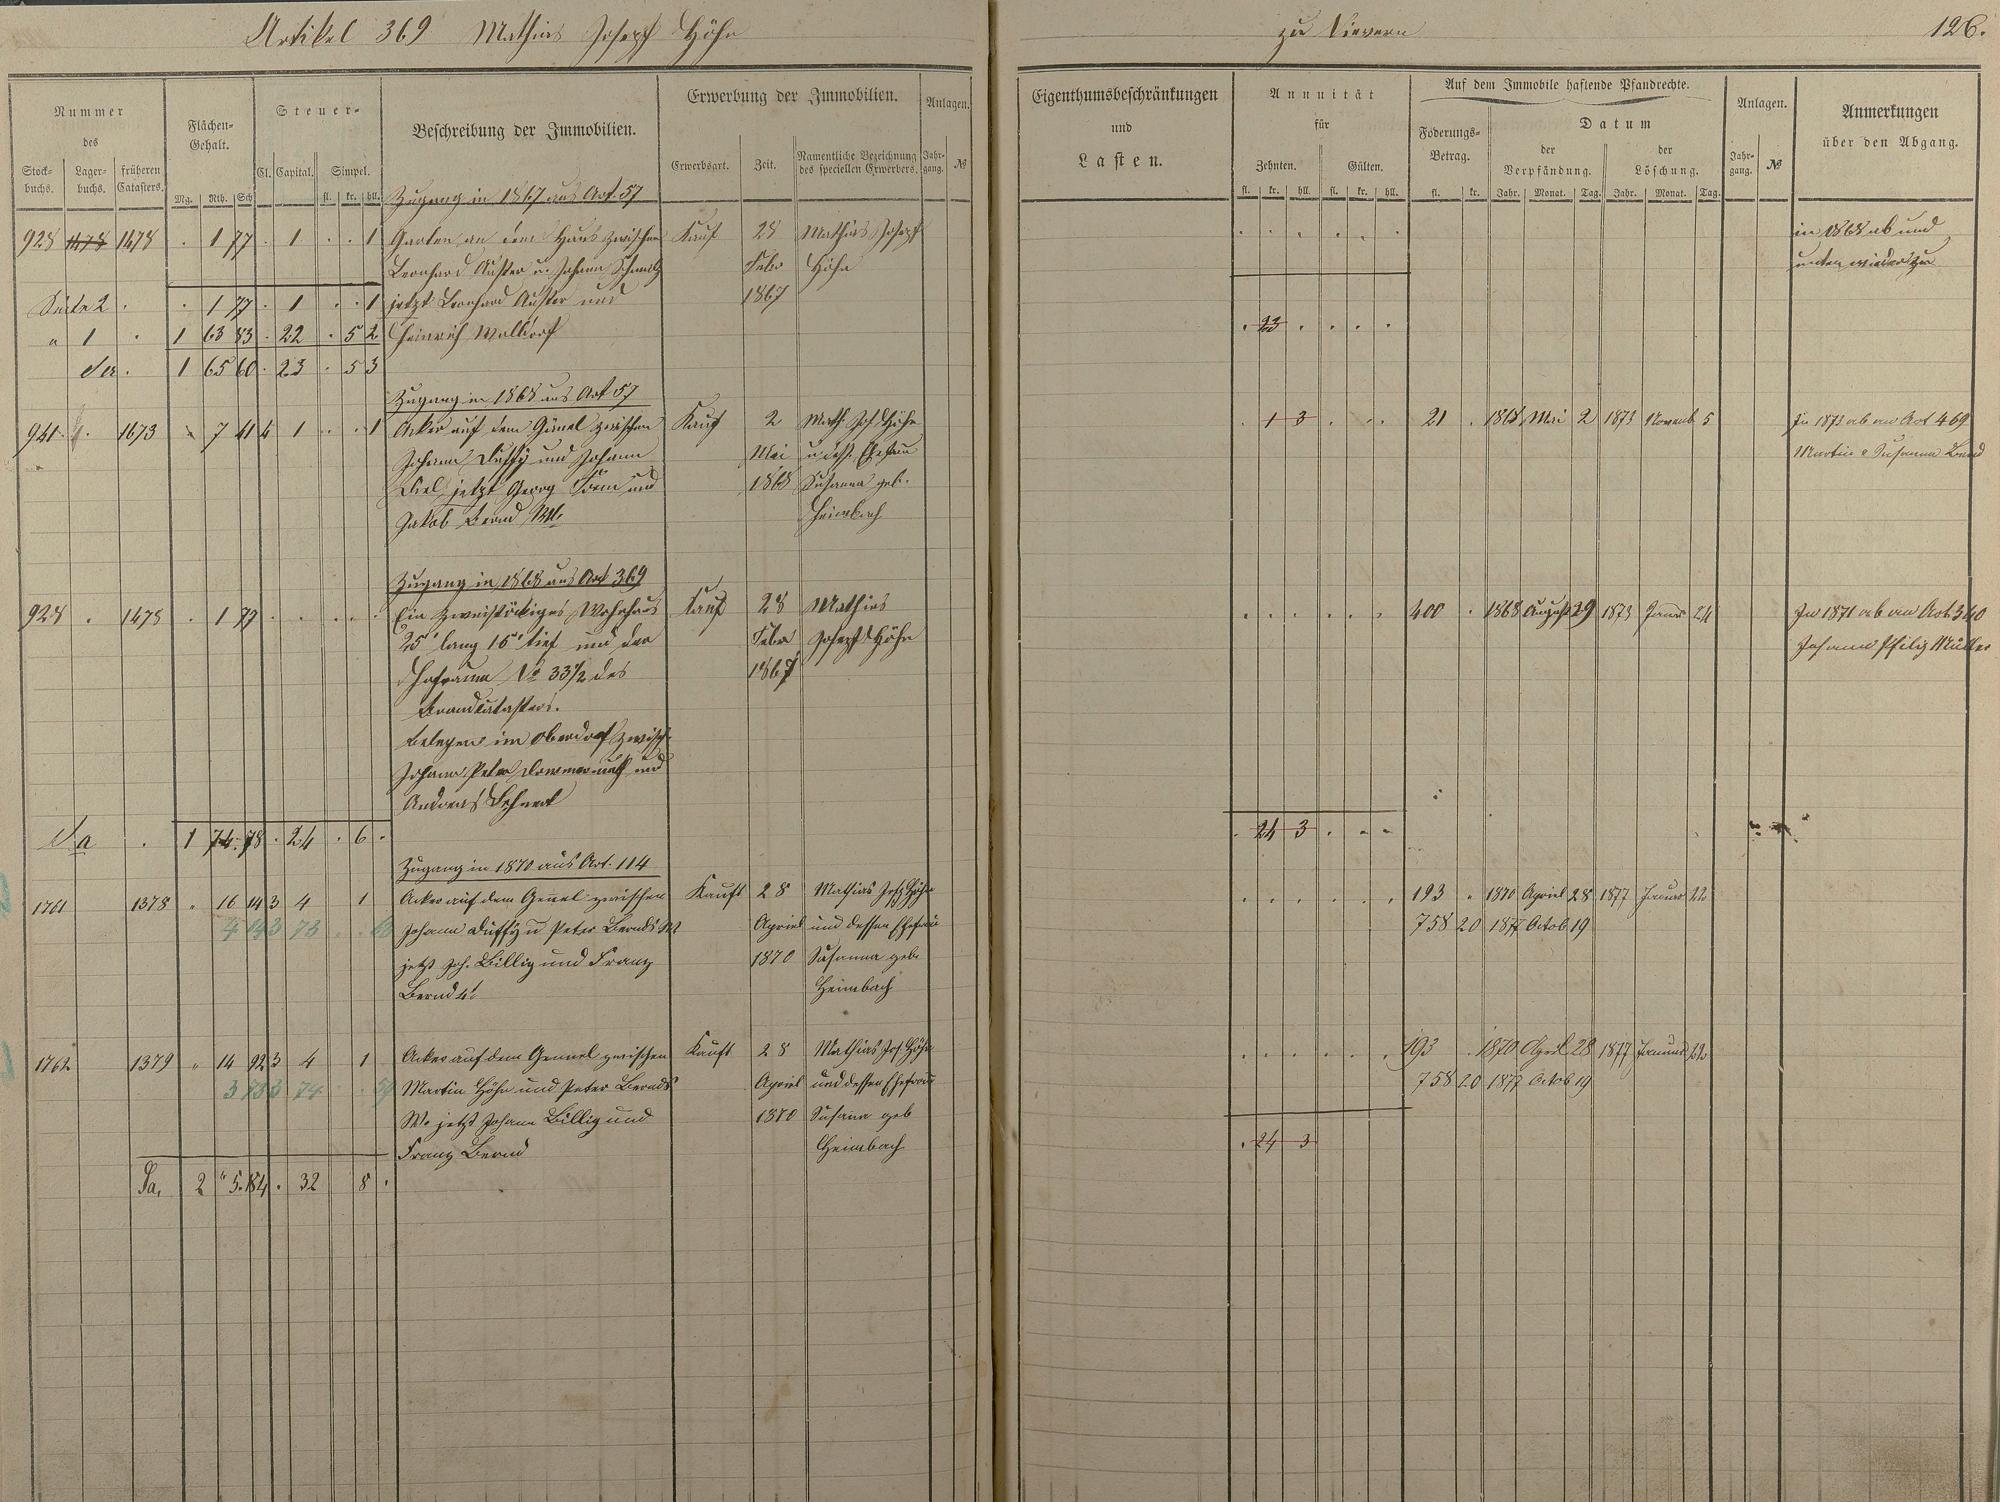 Artikel 369 Mathias Joseph Höhn
zu Nievern
126.
Nummer
des
Stock-
buchs.
Lager-
buchs.
früheren
Catasters.
Flächen-
Gehalt.
Mg. Rth. Sch
Steuer-
Cl. Capital. Simpel.
fl. kr. hll.
Beschreibung der Immobilien.
Erwerbung der Immobilien.
Erwerbsart.
Zeit.
Namentliche Bezeichnung
des speciellen Erwerbers.
Anlagen.
Jahr-
gang.
№
Eigenthumsbeschränkungen
und
Lasten.
Annuität
für
Zehnten. Gülten.
fl. kr. hll. fl. kr. hll.
Auf dem Immobile haftende Pfandrechte.
Foderungs-
Betrag.
fl. kr.
Datum
der
Verpfändung.
Jahr. Monat. Tag.
der
Löschung.
Jahr. Monat. Tag.
Anlagen.
Jahr-
gang.
№
Anmerkungen
über den Abgang.
Zugang in 1867 aus Art. 57
928 1478 1478 . 1 77 . 1 . . 1 Garten an dem Haus zwischen Kauf 28 Mathias Joseph
in 1868 ab und
Leonhard Auster u. Johann Schmitz Febr Höhn
unten wieder zu
Seite 2 . . 1 77 . 1 . . 1 jetzt Leonhard Auster und 1867
" 1 . 1 63 83 . 22 . 5 2 Heinrich Walldorf
. 23 . . . .
Sa . 1 65 60 . 23 . 5 3
Zugang in 1868 aus Art 57
941 . 1673 . 7 41 4 1 . . 1 Acker auf dem Gümel zwischen Kauf 2 Math. Jos. Höhn
. 1 3 . . . 21 . 1868 Mai 2 1873 Novemb 5 In 1873 ab an Art 469
Johann Duffy und Johann Mai u dess. Ehefrau
Martin & Susanna
jetzt Georg und 1868 Susanna geb.
Jakob Bernd Heimbach
Zugang in 1868 aus Art 369
928 . 1478 . 1 77 . . . . . Ein zweistöckiges Wohnhaus Kauf 28 Mathias
. . . . . . 400 . 1868 August 29 1873 24 In 1871 ab an Art. 340
25' lang 16' tief und der Febr Joseph Höhn
Johann Philip Müller
Hofraum № 33 1/2 des 1867
Brandcatasters.
belegen im Oberdorf zwisch.
Johann Peter und
Andreas Lehnert
Sa . 1 74 78 . 24 . 6 .
. 24 3 . . .
Zugang in 1870 aus Art. 114
1761 1378 " 16 14 3 4 1 Acker auf dem Gennel zwischen Kauft 28 Mathias Josp Höhn
. . . . . . 193 " 1870 Apriel 28 1877 Januar 22
Johann Duffy u Peter Bernds Apriel und dessen Ehefrau
758 20 1877 Octob 19
jetzt Joh. Billig und Franz 1870 Susanna geb.
Bernd 4t Heimbach
1762 1379 " 14 92 3 4 1 Acker auf dem Gennel zwischen Kauft 28 Mathias Jos. Höhn
. . . . . . 193 . 1870 April 28 1877 Januar 22
Martin Höhn und Peter Bernds Apriel und dessen Ehefrau
758 20 1877 Octob 19
W. jetzt Johann Billig und 1870 Susana geb
Franz Bernd Heimbach
. 24 3
Sa. 2 " 5. 84 . 32 8 .